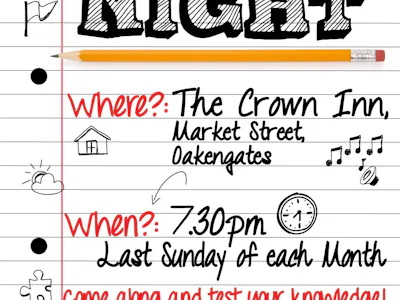 NIGHT
Where?: The Crown Inn,
Market Street,
Oakengates
When?: 7.30pm
Last Sunday of each Month
Come along and test your knowledge!